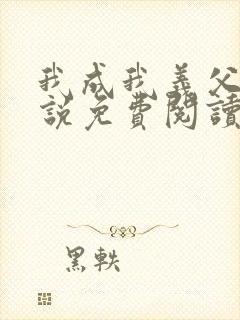 我成我义父
説免費閱讀
黑軼